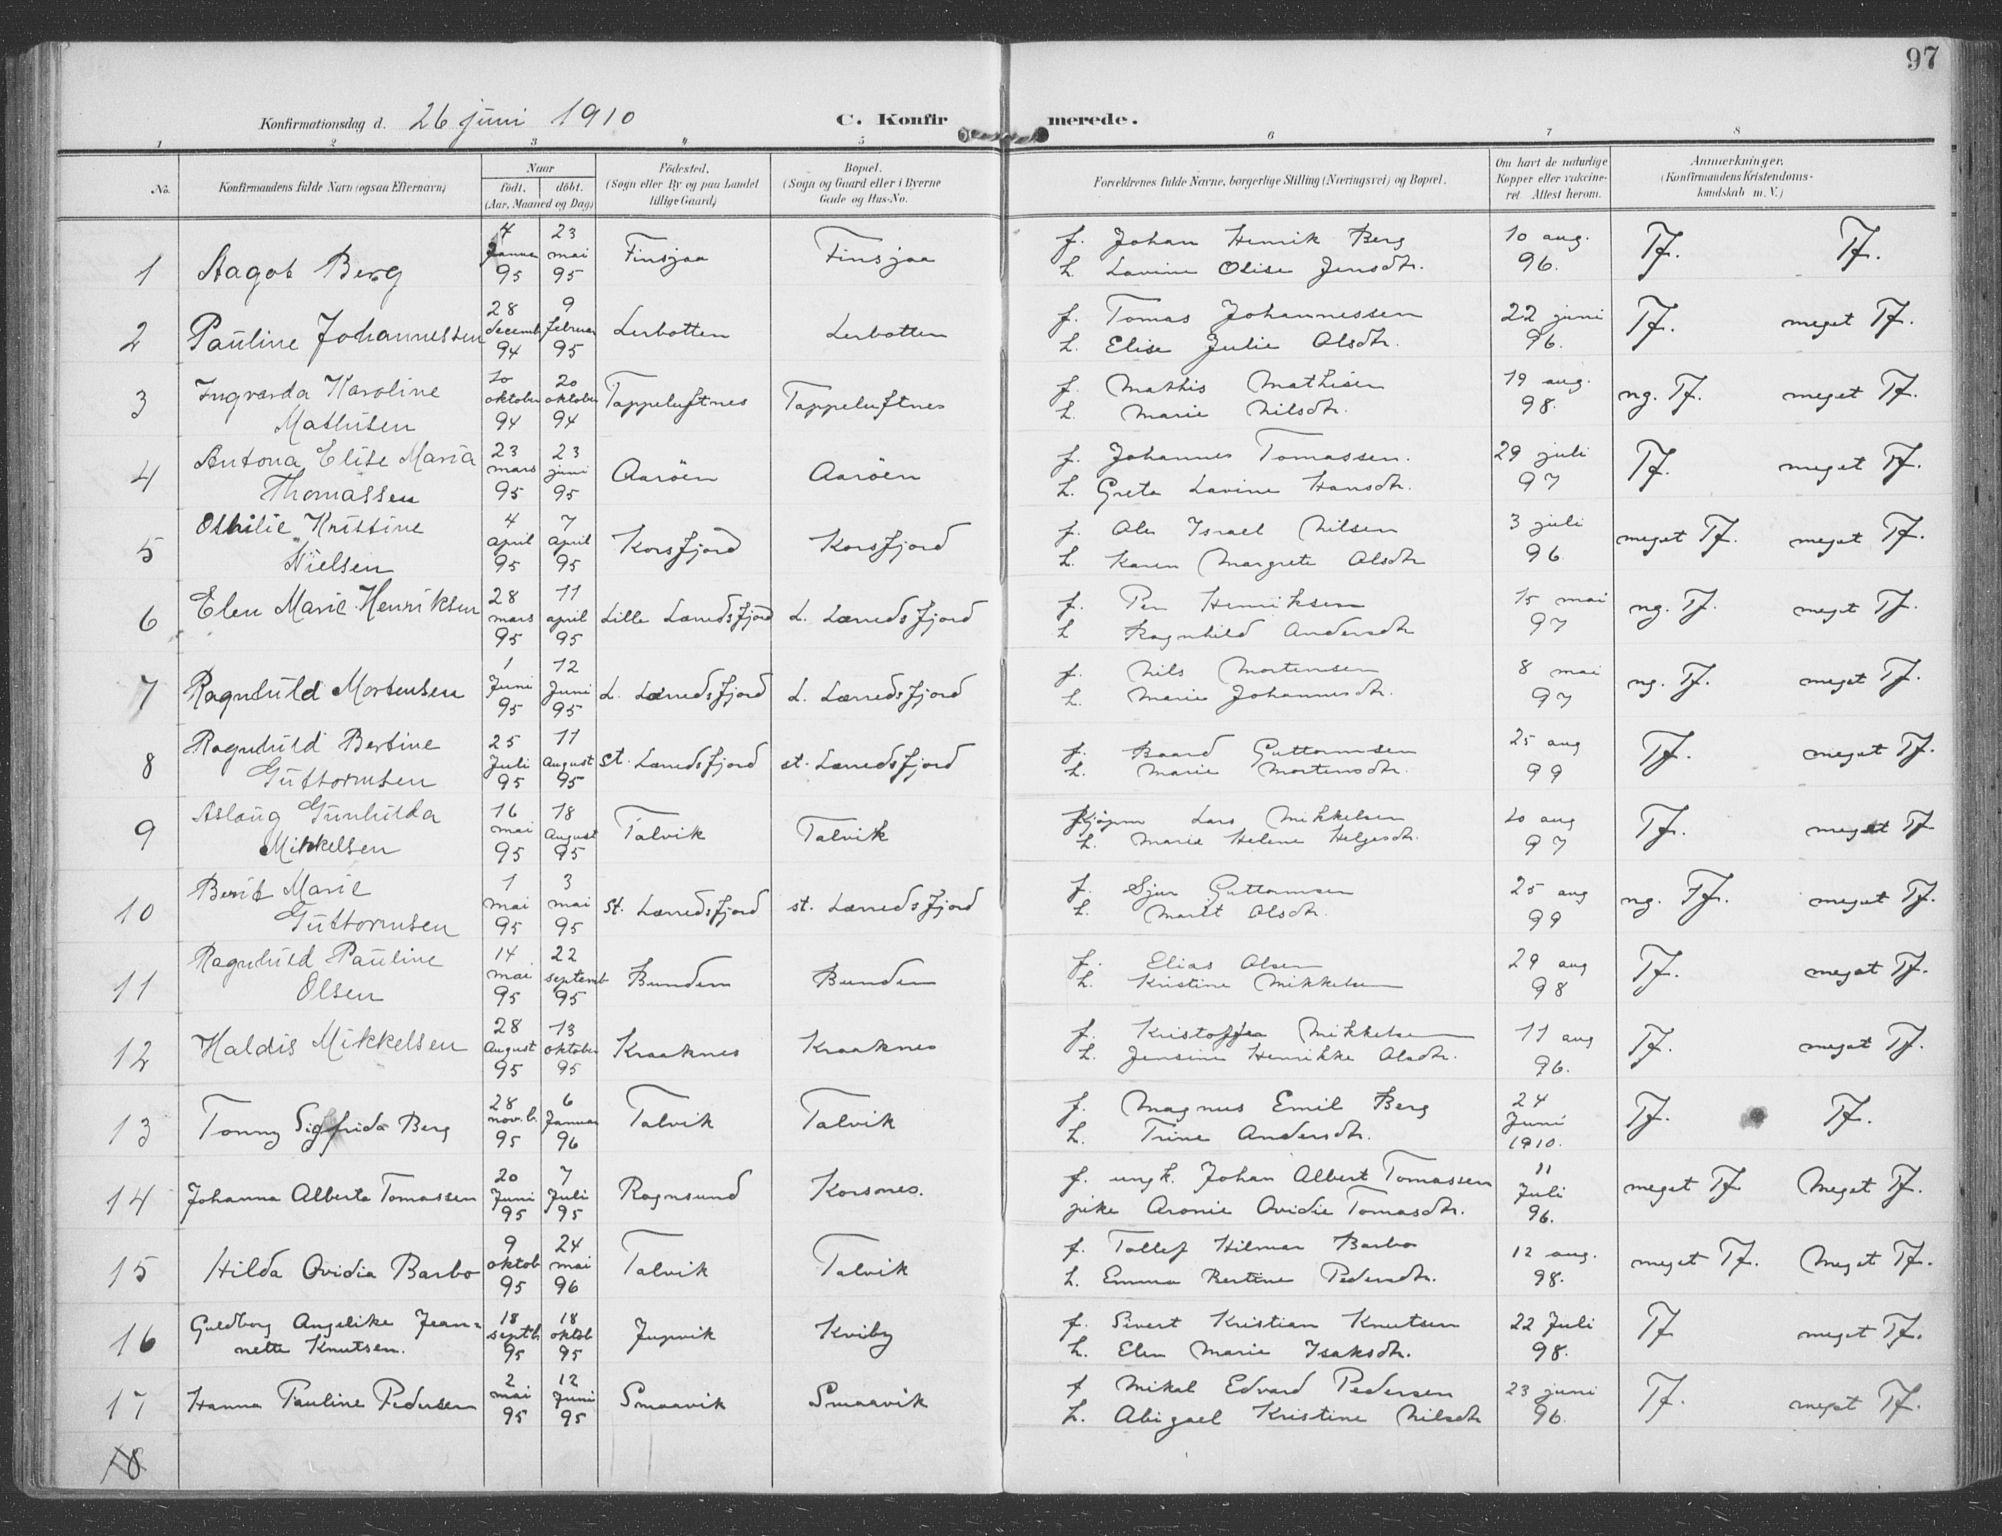 97
Konfirmationsdag d. 26 juni 1910 C. Konfirmerede.
1 2 3 4 5 6 7 8
No. Konfirmandens fulde Navn (ogsaa Efternavn) Naar født, døbt. (Aar, Maaned og Dag) Fødested. (Sogn eller By og paa Landet tillige Gaard) Bopæl. (Sogn og Gaard eller i Byerne Gade og Hus-No. Forældrenes fulde Navne, borgerlige Stilling (Næringsvei) og Bopæl. Om havt de naturlige Kopper eller vakcineret. Attest herom. Anmærkninger. (Konfirmandens Kristendomskundskab m. V.)
1 Aagot Berg 4 Janua 95 23 mai 95 Finsjaa Finsjaa f. Johan Henrik Berg 10 aug. 96. Tf. Tf.
h. Lavine Olise Jensdtr.
2 Pauline Johannessen 28 decemb 94 9 februar 95 Lerbotten Lerbotten f. Tomas Johannessen 22 juni 96. Tf. meget Tf.
h. Elise Julie Olsdtr.
3 Ingvarda Karoline 10 oktober 94 20 oktober 94 Tappeluftnes Tappeluftnes f. Mathis Mathisen 19 aug. 98. ng. Tf. meget Tf.
Mathisen h. Marie Nilsdtr.
4 Antona Elise Maria 23 mars 95 23 juni 95 Aarøen Aarøen f. Johannes Tomassen. 29 juli 97 Tf. meget Tf.
Thomassen h. Greta Lavine Hansdtr.
5 Othilie Kristine 4 april 95 7 april 95 Korsfjord Korsfjord f. Ole Israel Nilsen 3 juli 96 meget Tf. meget Tf.
Nielsen h. Karen Margrete Olsdtr
6 Elen Marie Henriksen 28 mars 95 11 april 95 Lille Lerredsfjord L. Lerredsfjord f. Per Henriksen 15 mai 97 ng. Tf. meget Tf.
h Ragnhild Andersdtr
7 Ragnhild Mortensen 1 Juni 95 12 Juni 95 L. Lerredsfjord L. Lerredsfjord f. Nils Mortensen 8 mai 97 ng. Tf. meget Tf.
h. Marie Johannesdtr.
8 Ragnhild Bertine 25 Juli 95 11 August 95 St. Lerredsfjord st. Lerredsfjord f. Baard Guttormsen 25 aug 99 Tf. meget Tf.
Guttormsen h. Marie Mortensdtr.
9 Aslaug Gunhilda 16 mai 95 18 August 95 Talvik Talvik Lars Mikkelsen 20 aug 97 Tf. meget Tf
Mikkelsen h. Marie Helene Helgesdtr.
10 Berit Marie 1 mai 95 3 mai 95 St. Lerredsfjord st. Lerredsfjord f. Sjur Guttormsen 25 aug 99 ng. Tf. meget Tf.
Guttormsen h. Marit Olsdtr.
11 Ragnhild Pauline 14 mai 95 22 septemb 95 Bunden Bunden f. Elias Olsen 29 aug 98 Tf. meget Tf.
Olsen h. Kristine Mikkelsen
12 Haldis Mikkelsen 28 August 95 13 oktober 95 Kraaknes Kraaknes f. Kristoffer Mikkelsen 11 aug 96. Tf. meget Tf.
h. Jensine Henrikke Olsdtr.
13 Tonny Sigfrida Berg 28 nov.b. 95 6 Januar 96 Talvik Talvik f. Magnus Emil Berg 24 Juni 1910. Tf. Tf.
h. Trine Andersdtr.
14 Johanna Alberta Tomassen 20 Juni 95 7 Juli 95 Rognsund Korsnes. f. ungk. Johan Albert Tomassen 11 Juli 96. meget Tf. Meget Tf.
pike Aronie Ovidie Tomasdtr.
15 Hilda Ovidia Barbo 9 oktob 95 24 mai 96 Talvik Talvik f. Tollef Hilmar Barbo 12 aug. 98. meget Tf. Meget Tf.
h. Emma Bertine Pedersdtr.
16 Guldborg Angelike Jean- 18 septb. 95 18 oktob 95 Jupvik Kviby f. Sivert Kristian Knutsen 22 Juli 98. Tf meget Tf.
nette Knutsen. h. Elen Marie Isaksdtr.
17 Hanna Pauline Pedersen 2 mai 95 12 Juni 95 Smaavik Smaavik f Mikal Edvard Pedersen 23 juni 96. Tf. meget Tf.
h. Abigael Kristine Nilsdtr
18